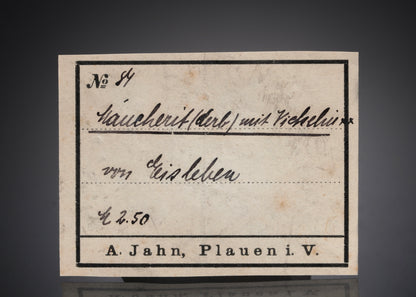 № 84
Maucherit (derb) mit Nickelin xx
von Eisleben
M 2.50
A. Jahn, Plauen i. V.